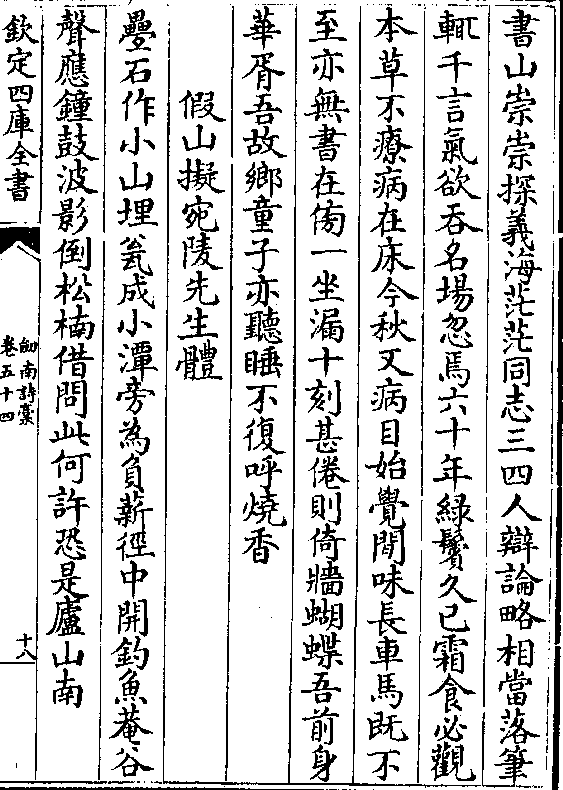 書山崇崇探義海茫茫同志三四人辯論略相當落筆
輒千言氣欲吞名場忽焉六十年綠鬢久已霜食必觀
本草不療病在床今秋又病目始覺閒味長車馬既不
至亦無書在傍一坐漏十刻甚倦則倚牆蝴蝶吾前身
華胥吾故鄉童子亦聽睡不復呼燒香
假山擬宛陵先生體
疊石作小山埋瓮成小潭旁為負薪徑中開釣魚菴谷
聲應鐘鼓波影倒松楠借問此何許恐是廬山南
欽定四庫全書
劍南詩槀
卷五十四
十八